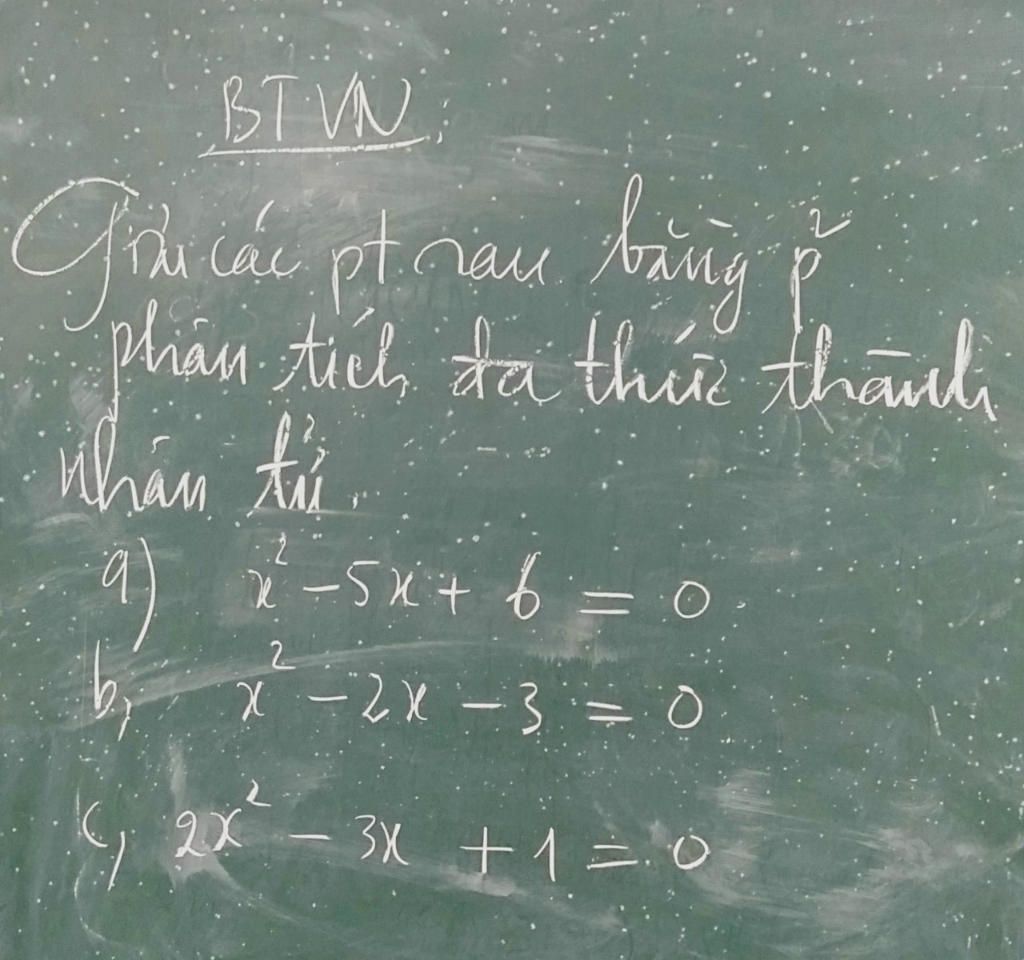 BTVN:
Giải các pt sau bằng p²
phân tích đa thức thành
nhân tử.
a) x² - 5x + 6 = 0.
b, x² - 2x - 3 = 0
c, 2x² - 3x + 1 = 0